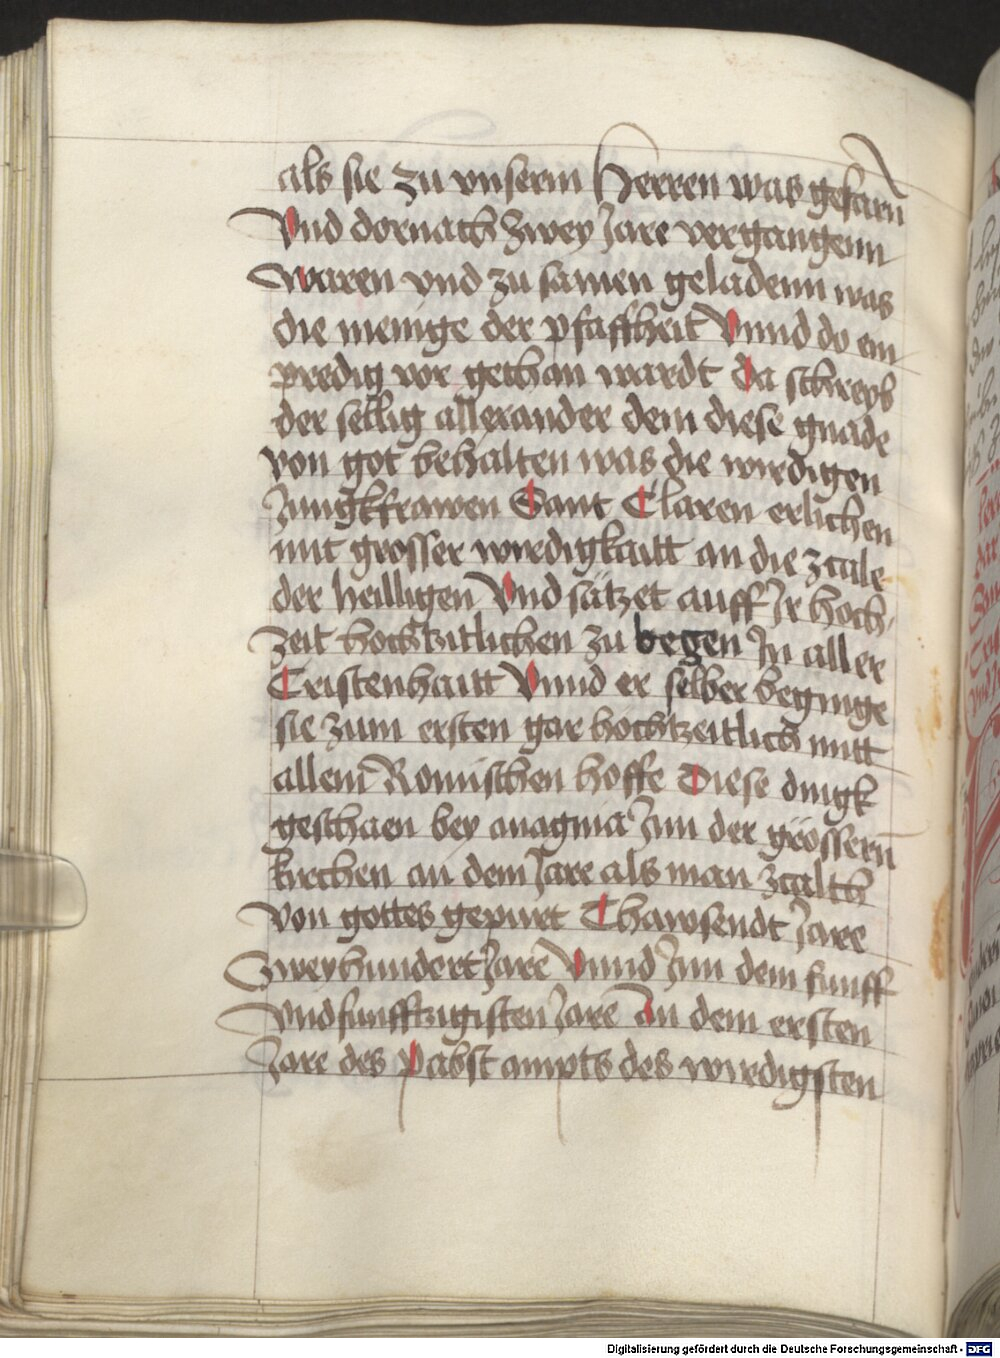 als sie zu vnserm Herren was gefarn̄
Vnd dornach zwey Jare vergangenn
waren vnd zu samen geladenn was
die menige der pfaffheit Vnnd do ein
predig vor gethan wardt Da schreyb
der sellig allexander dem diese gnade
von got behalten was die wirdigen
Jungkfrawen Sant Claren erlichen
mit grosser wirdigkaitt an die zcale
der heilligen Vnd sätzet auff Jr hoch
zeit hochtzitlichen zu begen Jn aller
Cristenhaitt Vnnd er selber beginge
sie zum ersten gar hochtzeitlich mitt
allem Romischen hoffe Diese dingk
geschaen bey anagnia Jnn der grössern̄
kirchen an dem Jare als man zcalth
von gottes gepurt Thawsendt Jare
Zweyhundert Jare Vnnd Jnn dem funff
Vndfunfftzigisten Jare An dem ersten
Jare des Pabst ampts des wirdigsten
Digitalisierung gefördert durch die Deutsche Forschungsgemeinschaft - DFG